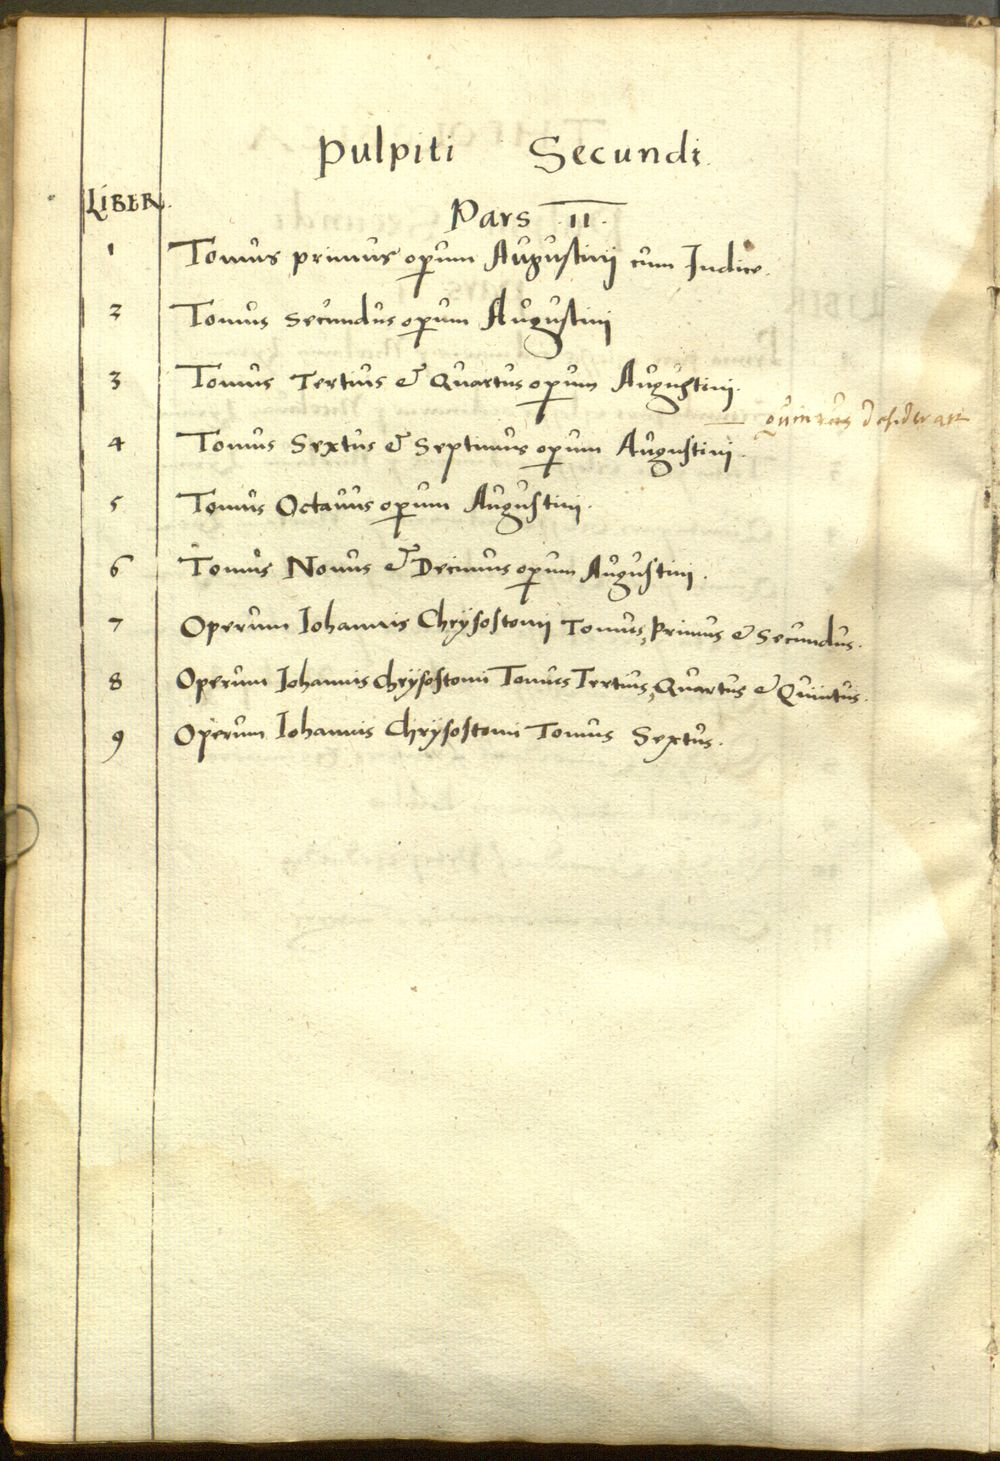 Pulpiti Secundi
LIBER.
Pars II.
1 Tomus primus operum Augustinij cum Indice.
2 Tomus Secundus operum Augustinj
3 Tomus Tertius & Quartus operum Augustinj.
quintus desiderat
4 Tomus Sextus & Septimus operum Augustinj.
5 Tomus Octauus operum Augustinj.
6 Tomus Nonus & Decimus operum Augustinj.
7 Operum Iohannis Chrÿsostomj Tomus, Primus & Secundus.
8 Operum Iohannis Chrÿsostomi Tomus Tertius, Quartus & Quintus.
9 Operum Iohannis Chrÿsostomi Tomus Sextus.